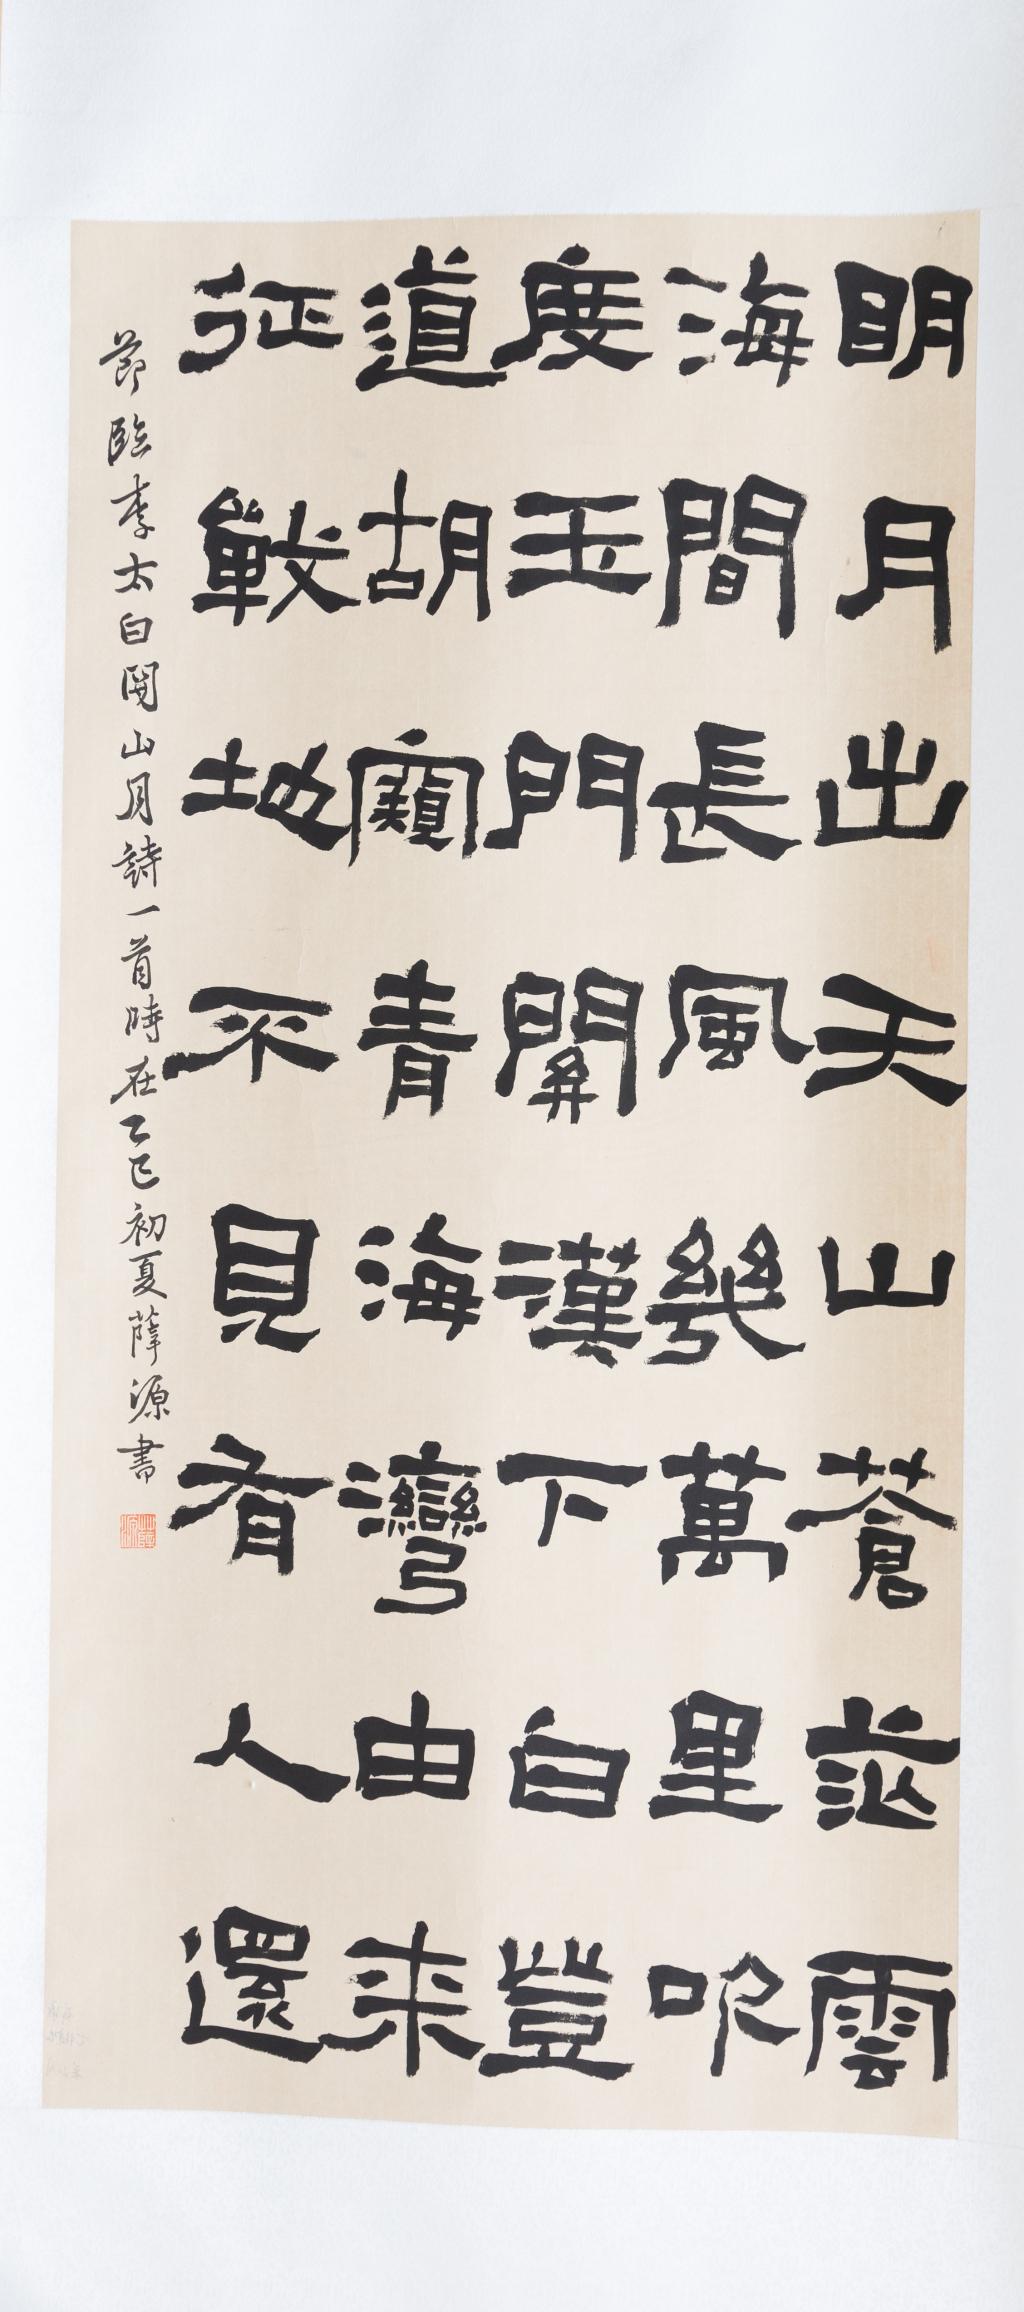 明月出天山蒼茫雲
海間長風幾萬里吹
度玉門關漢下白登
道胡窺青海灣由來
征戰地不見有人還
節臨李太白關山月詩一首時在乙巳初夏薛源書
薛源